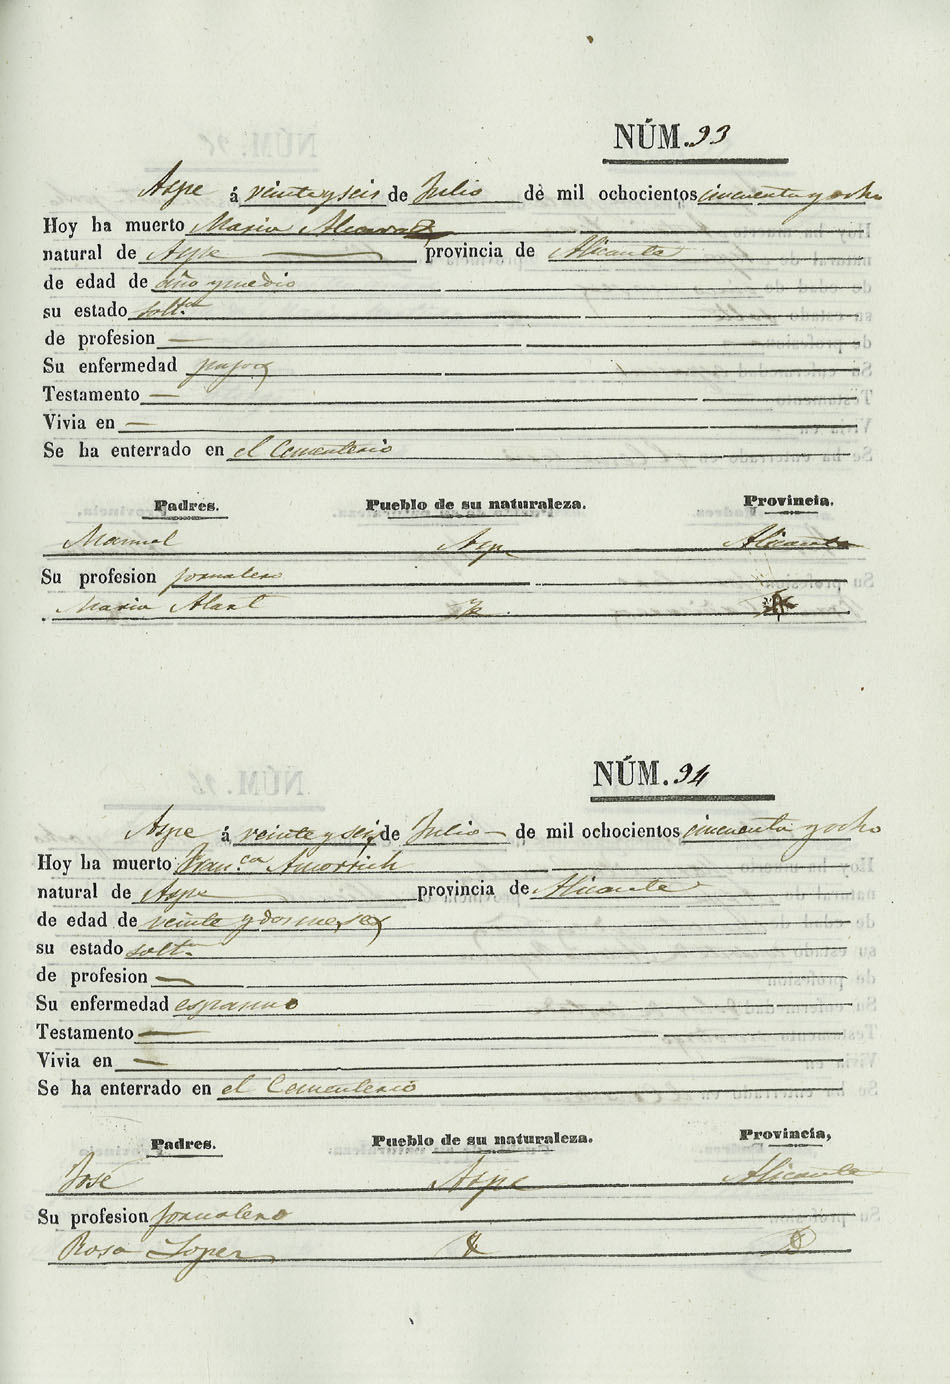 NÚM. 93
Aspe á veinte y seis de Julio de mil ochocientos cincuenta y ocho
Hoy ha muerto Maria Alcaraz
natural de Aspe provincia de Alicante
de edad de año y medio
su estado solt.ª
de profesion —
Su enfermedad
Testamento —
Vivia en —
Se ha enterrado en el Cementerio
Padres. Pueblo de su naturaleza. Provincia.
Manuel Aspe Alicante
Su profesion jornalero
Maria
NÚM. 94
Aspe á veinte y seis de Julio — de mil ochocientos cincuenta y ocho
Hoy ha muerto Fran.ca
natural de Aspe provincia de Alicante
de edad de veinte y dos meses
su estado solt.ª
de profesion —
Su enfermedad espasmo
Testamento —
Vivia en —
Se ha enterrado en el Cementerio
Padres. Pueblo de su naturaleza. Provincia,
José Aspe Alicante
Su profesion jornalero
Rosa Lopez